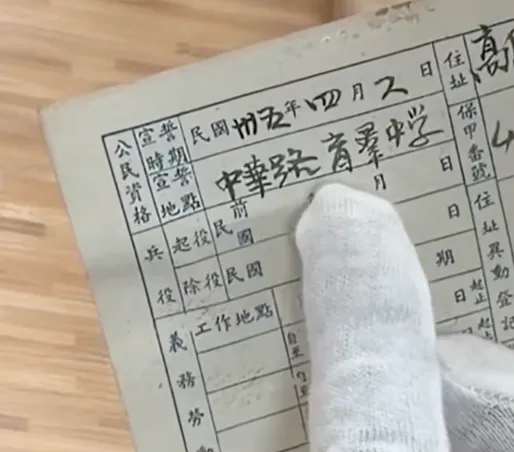 公民資格 宣誓時期 民國卅五年四月 日 住址 高
宣誓地點 中華路育羣中学 保甲番號 4
兵役 起役 民前國 月 日 住址異動登記
除役 民國 期
義務勞 工作地點 自至 日 起止